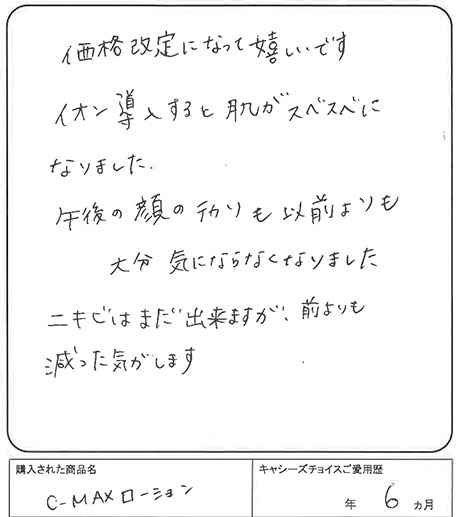 価格改定になって嬉しいです
イオン導入すると肌がスベスベに
なりました.
午後の顔のテカリも以前よりも
大分気にならなくなりました
ニキビはまだ出来ますが、前よりも
減った気がします
購入された商品名
C-MAXローション
キャシーズチョイスご愛用歴
年 6 ヵ月